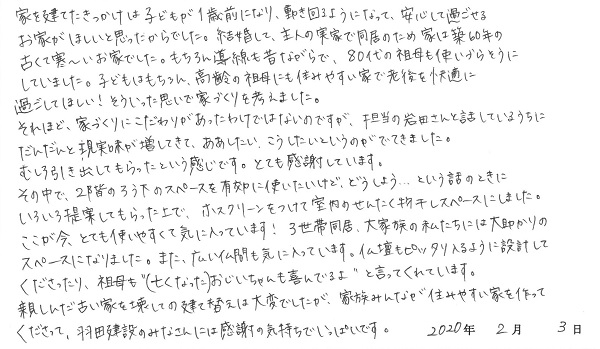 家を建てたきっかけは子どもが1歳前になり、動き回るようになって、安心して過ごせる
お家がほしいと思ったからでした。結婚して、主人の実家で同居のため家は築60年の
古くて寒〜いお家でした。もちろん導線も昔ながらで、80代の祖母も使いづらそうに
していました。子どもはもちろん、高齢の祖母にも住みやすい家で老後を快適に
過ごしてほしい！そういった思いで家づくりを考えました。
それほど、家づくりにこだわりがあったわけではないのですが、担当の岩田さんと話しているうちに
だんだんと現実味が増してきて、ああしたい、こうしたいというのがでてきました。
むしろ引き出してもらったという感じです。とても感謝しています。
その中で、2階のろう下のスペースを有効に使いたいけど、どうしよう…という話のときに
いろいろ提案してもらった上で、ホスクリーンをつけて室内のせんたく物干しスペースにしました。
ここが今、とても使いやすくて気に入っています！3世帯同居、大家族の私たちには大助かりの
スペースになりました。また、広い仏間も気に入っています。仏壇もピッタリ入るように設計して
くださったり、祖母も"(亡くなった)おじいちゃんも喜んでるよ"と言ってくれています。
親しんだ古い家を壊しての建て替えは大変でしたが、家族みんなが住みやすい家を作って
くださって、羽田建設のみなさんには感謝の気持ちでいっぱいです。 2020年 2月 3日